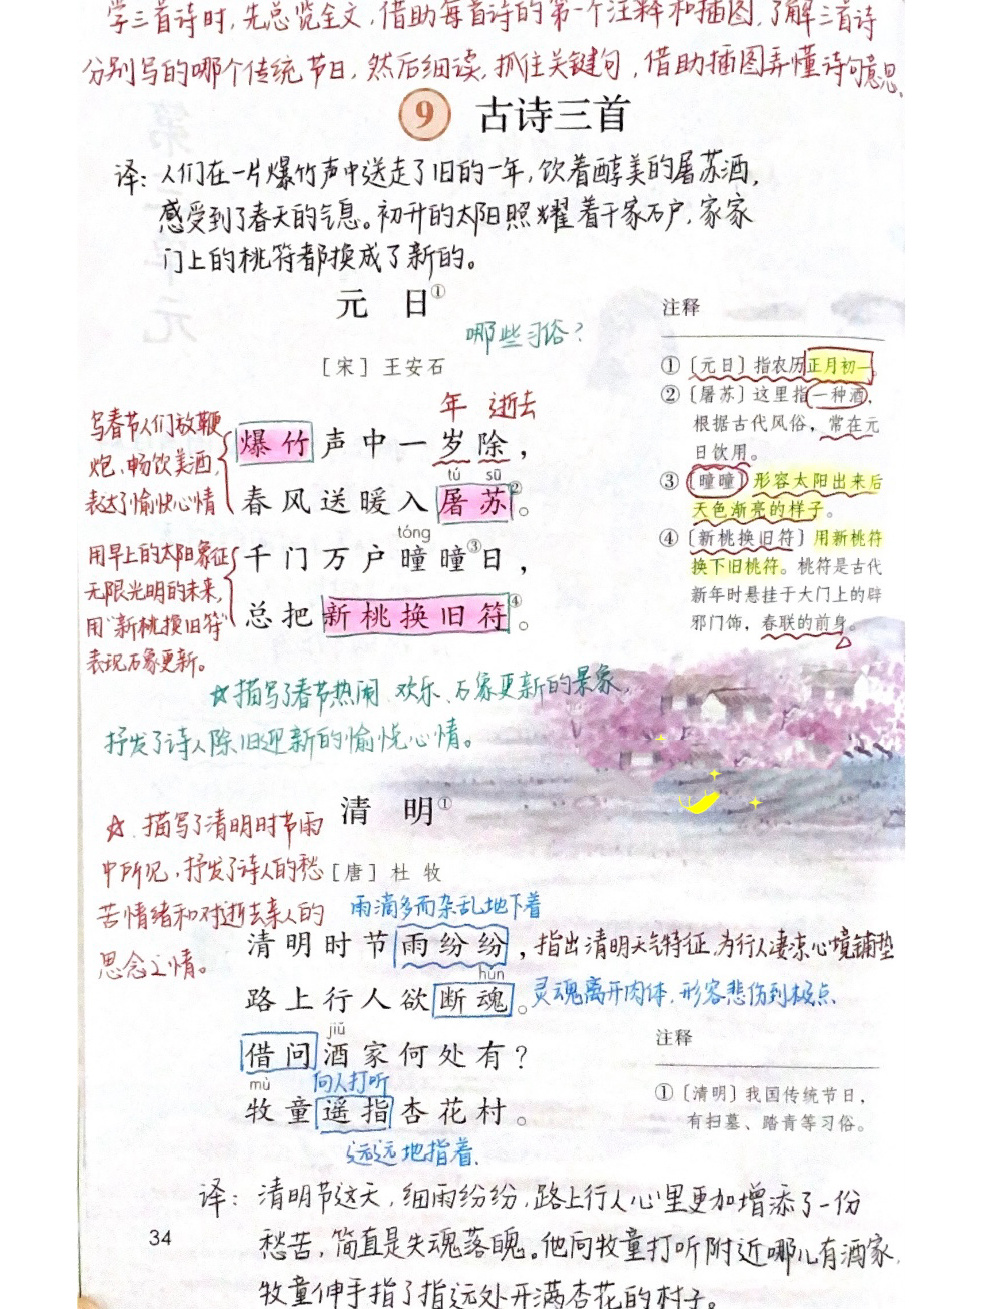 学三首诗时,先总览全文,借助每首诗的第一个注释和插图,了解三首诗
分别写的哪个传统节日,然后细读,抓住关键句,借助插图弄懂诗句意思。
9 古诗三首
译:人们在一片爆竹声中送走了旧的一年,饮着醇美的屠苏酒,
感受到了春天的气息。初升的太阳照耀着千家万户,家家
门上的桃符都换成了新的。
元 日①
哪些习俗?
[宋] 王安石
年 逝去
写春节人们放鞭
炮,畅饮美酒,
表达了愉快心情
爆竹声中一岁除,
tú sū
春风送暖入屠苏②。
tóng
千门万户曈曈③日,
总把新桃换旧符④。
用早上的太阳象征
无限光明的未来,
用“新桃换旧符”
表现万象更新。
注释
①〔元日〕指农历正月初一。
②〔屠苏〕这里指一种酒,
根据古代风俗,常在元
日饮用。
③〔曈曈〕形容太阳出来后
天色渐亮的样子。
④〔新桃换旧符〕用新桃符
换下旧桃符。桃符是古代
新年时悬挂于大门上的辟
邪门饰,春联的前身。
☆描写了春节热闹、欢乐、万象更新的景象,
抒发了诗人除旧迎新的愉悦心情。
清 明①
[唐] 杜 牧
☆.描写了清明时节雨
中所见,抒发了诗人的愁
苦情绪和对逝去亲人的
思念之情。
雨滴多而杂乱地下着
清明时节雨纷纷,
指出清明天气特征,为行人凄凉心境铺垫
hún
路上行人欲断魂。
灵魂离开肉体,形容悲伤到极点.
jiǔ
借问酒家何处有?
向人打听
mù
牧童遥指杏花村。
远远地指着.
注释
①〔清明〕我国传统节日,
有扫墓、踏青等习俗。
译:清明节这天,细雨纷纷,路上行人心里更加增添了一份
愁苦,简直是失魂落魄。他向牧童打听附近哪儿有酒家,
牧童伸手指了指远处开满杏花的村子。
34